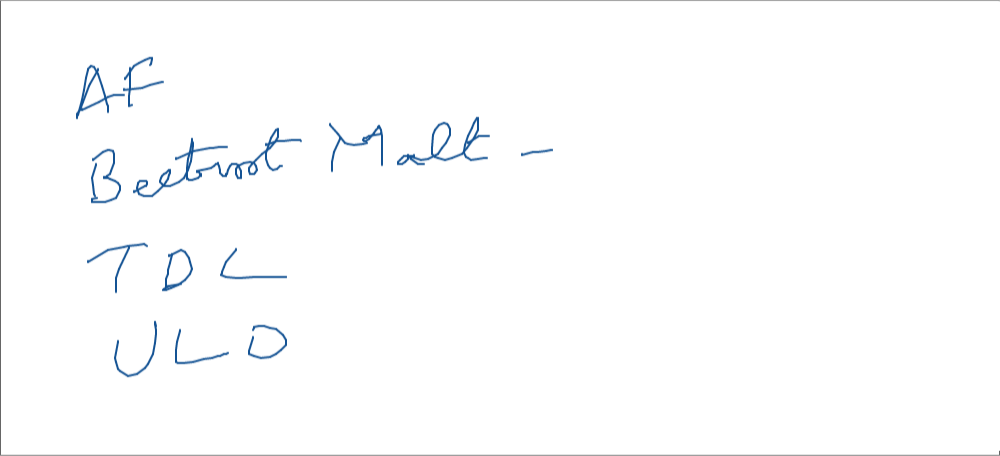 AF
Beetroot Malt -
TDL
ULD